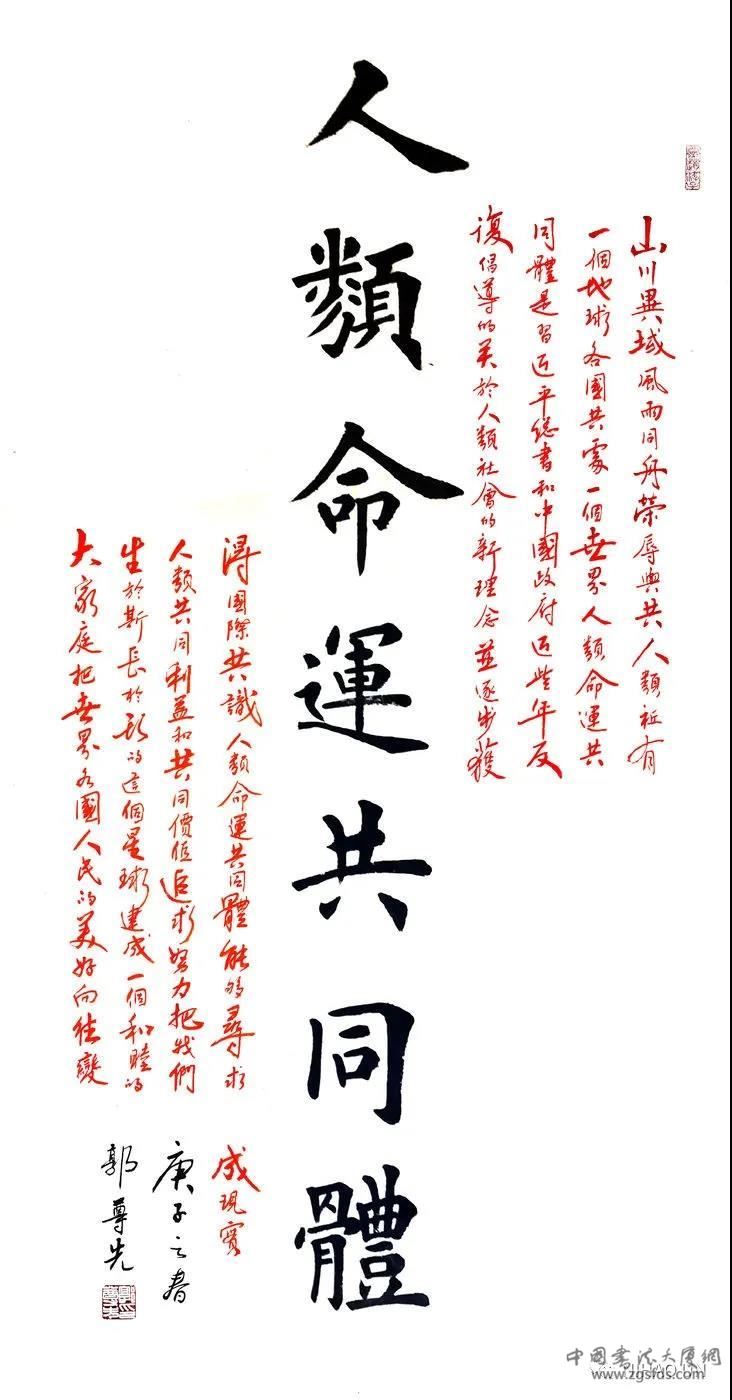 人類命運共同體
山川異域風雨同舟榮辱與共人類祇有
一個地球各國共處一個世界人類命運共
同體是習近平總書和中國政府近些年反
復倡導的關於人類社會的新理念並逐步獲
得國際共識人類命運共同體能夠尋求
人類共同利益和共同價值追求努力把我們
生於斯長於斯的這個星球建成一個和睦的
大家庭把世界各國人民的美好向往變
成現實
庚子之春
郭尊先
中國書法大厦網
www.zgsfds.com